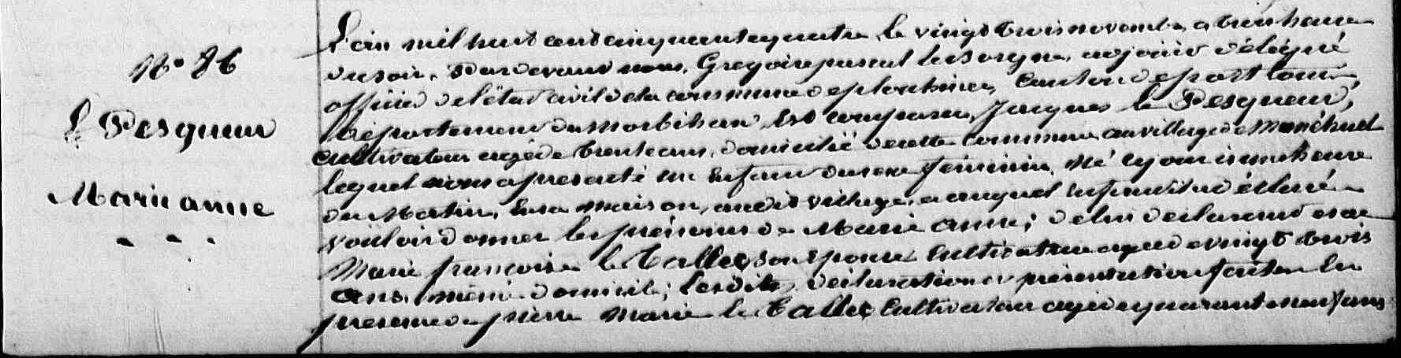 N° 86
Le Pesqueur
Marie anne
L'an mil huit cent cinquante quatre le vingt trois novembre a trois heure
du soir, Pardevant nous, Grégoire pascal le Sorgne, adjoint délégué
officier de l'état civil de la commune de plouhinec, canton de port louis
Département du Morbihan, Est comparu, Jacques le Pesqueur,
cultivateur agé de trente ans, domicilié de cette commune, au village de Manéhuel
lequel nous a presenté un Enfant du sexe féminin, Né ce jour à une heure
du Matin, En sa maison, audit village, auquel enfant il a déclaré
vouloir donner les prénoms de Marie Anne; de lui déclarant et de
Marie françoise le Tallec, son epouse Cultivatrice agée de vingt trois
ans, même domicile; Lesdites déclaration et présentation faites En
presence de pierre Marie le Tallec Cultivateur agé de quarante neuf ans